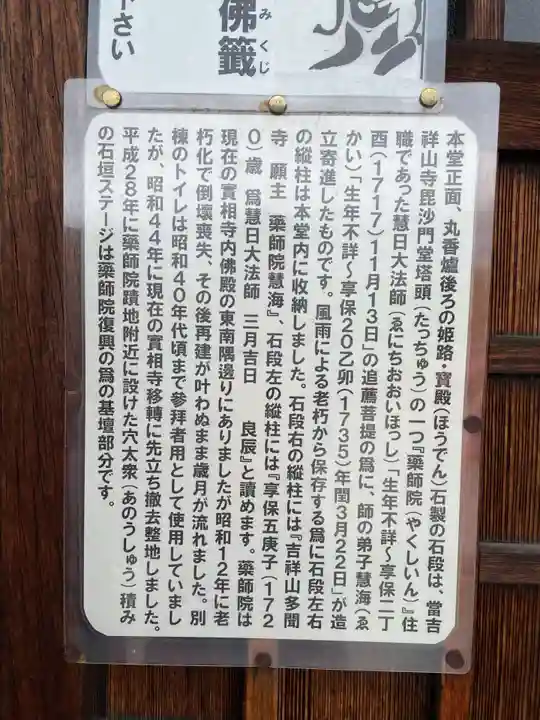 佛籤
みくじ
下さい
本堂正面、丸香爐後ろの姫路・寶殿(ほうでん)石製の石段は、當吉
祥山寺毘沙門堂塔頭(たっちゅう)の一つ『藥師院(やくしいん)』住
職であった慧日大法師(ゑにちおおいほっし)「生年不詳~享保二丁
酉(1717)11月13日」の追薦菩提の爲に、師の弟子慧海(ゑ
かい)「生年不詳~享保20乙卯(1735)年閏3月22日」が造
立寄進したものです。風雨による老朽から保存する爲に石段左右
の縦柱は本堂内に收納しました。石段右の縦柱には『吉祥山多聞
寺 願主 藥師院慧海』、石段左の縦柱には『享保五庚子(172
0)歳 爲慧日大法師 三月吉日 良辰』と読めます。藥師院は
現在の實相寺内佛殿の東南隅邊りにありましたが昭和12年に老
朽化で倒壞喪失、その後再建が叶わぬまま歳月が流れました。別
棟のトイレは昭和40年代頃まで參拜者用として使用していまし
たが、昭和44年に現在の實相寺移轉に先立ち撤去整地しました。
平成28年に藥師院蹟地附近に設けた穴太衆(あのうしゅう)積み
の石垣ステージは藥師院復興の爲の基壇部分です。